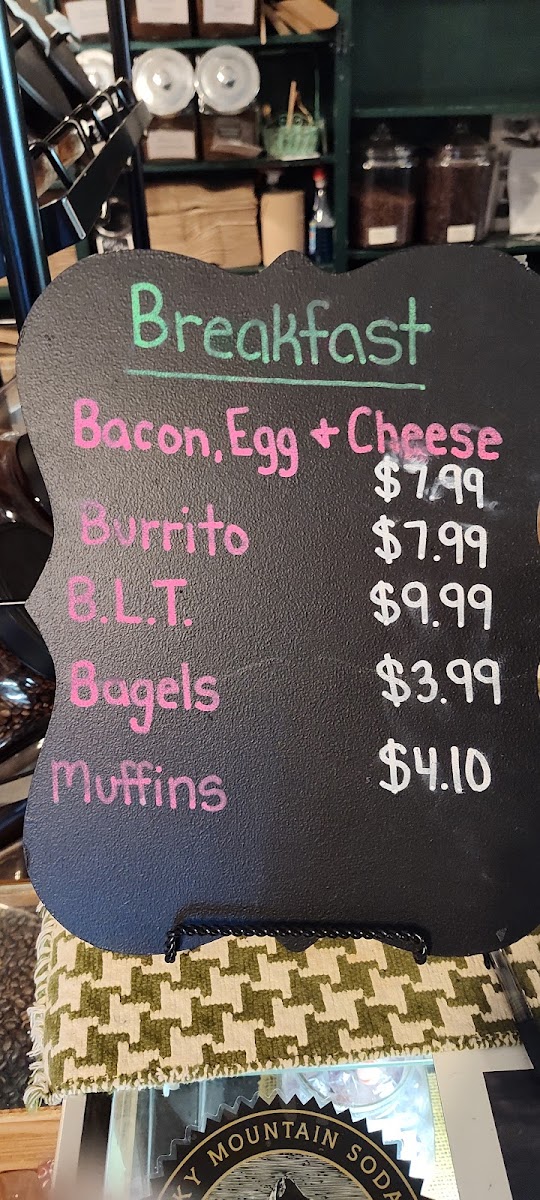 Breakfast
Bacon, Egg + Cheese
$7.99
Burrito $7.99
B.L.T. $9.99
Bagels $3.99
Muffins $4.10
KY MOUNTAIN SODA